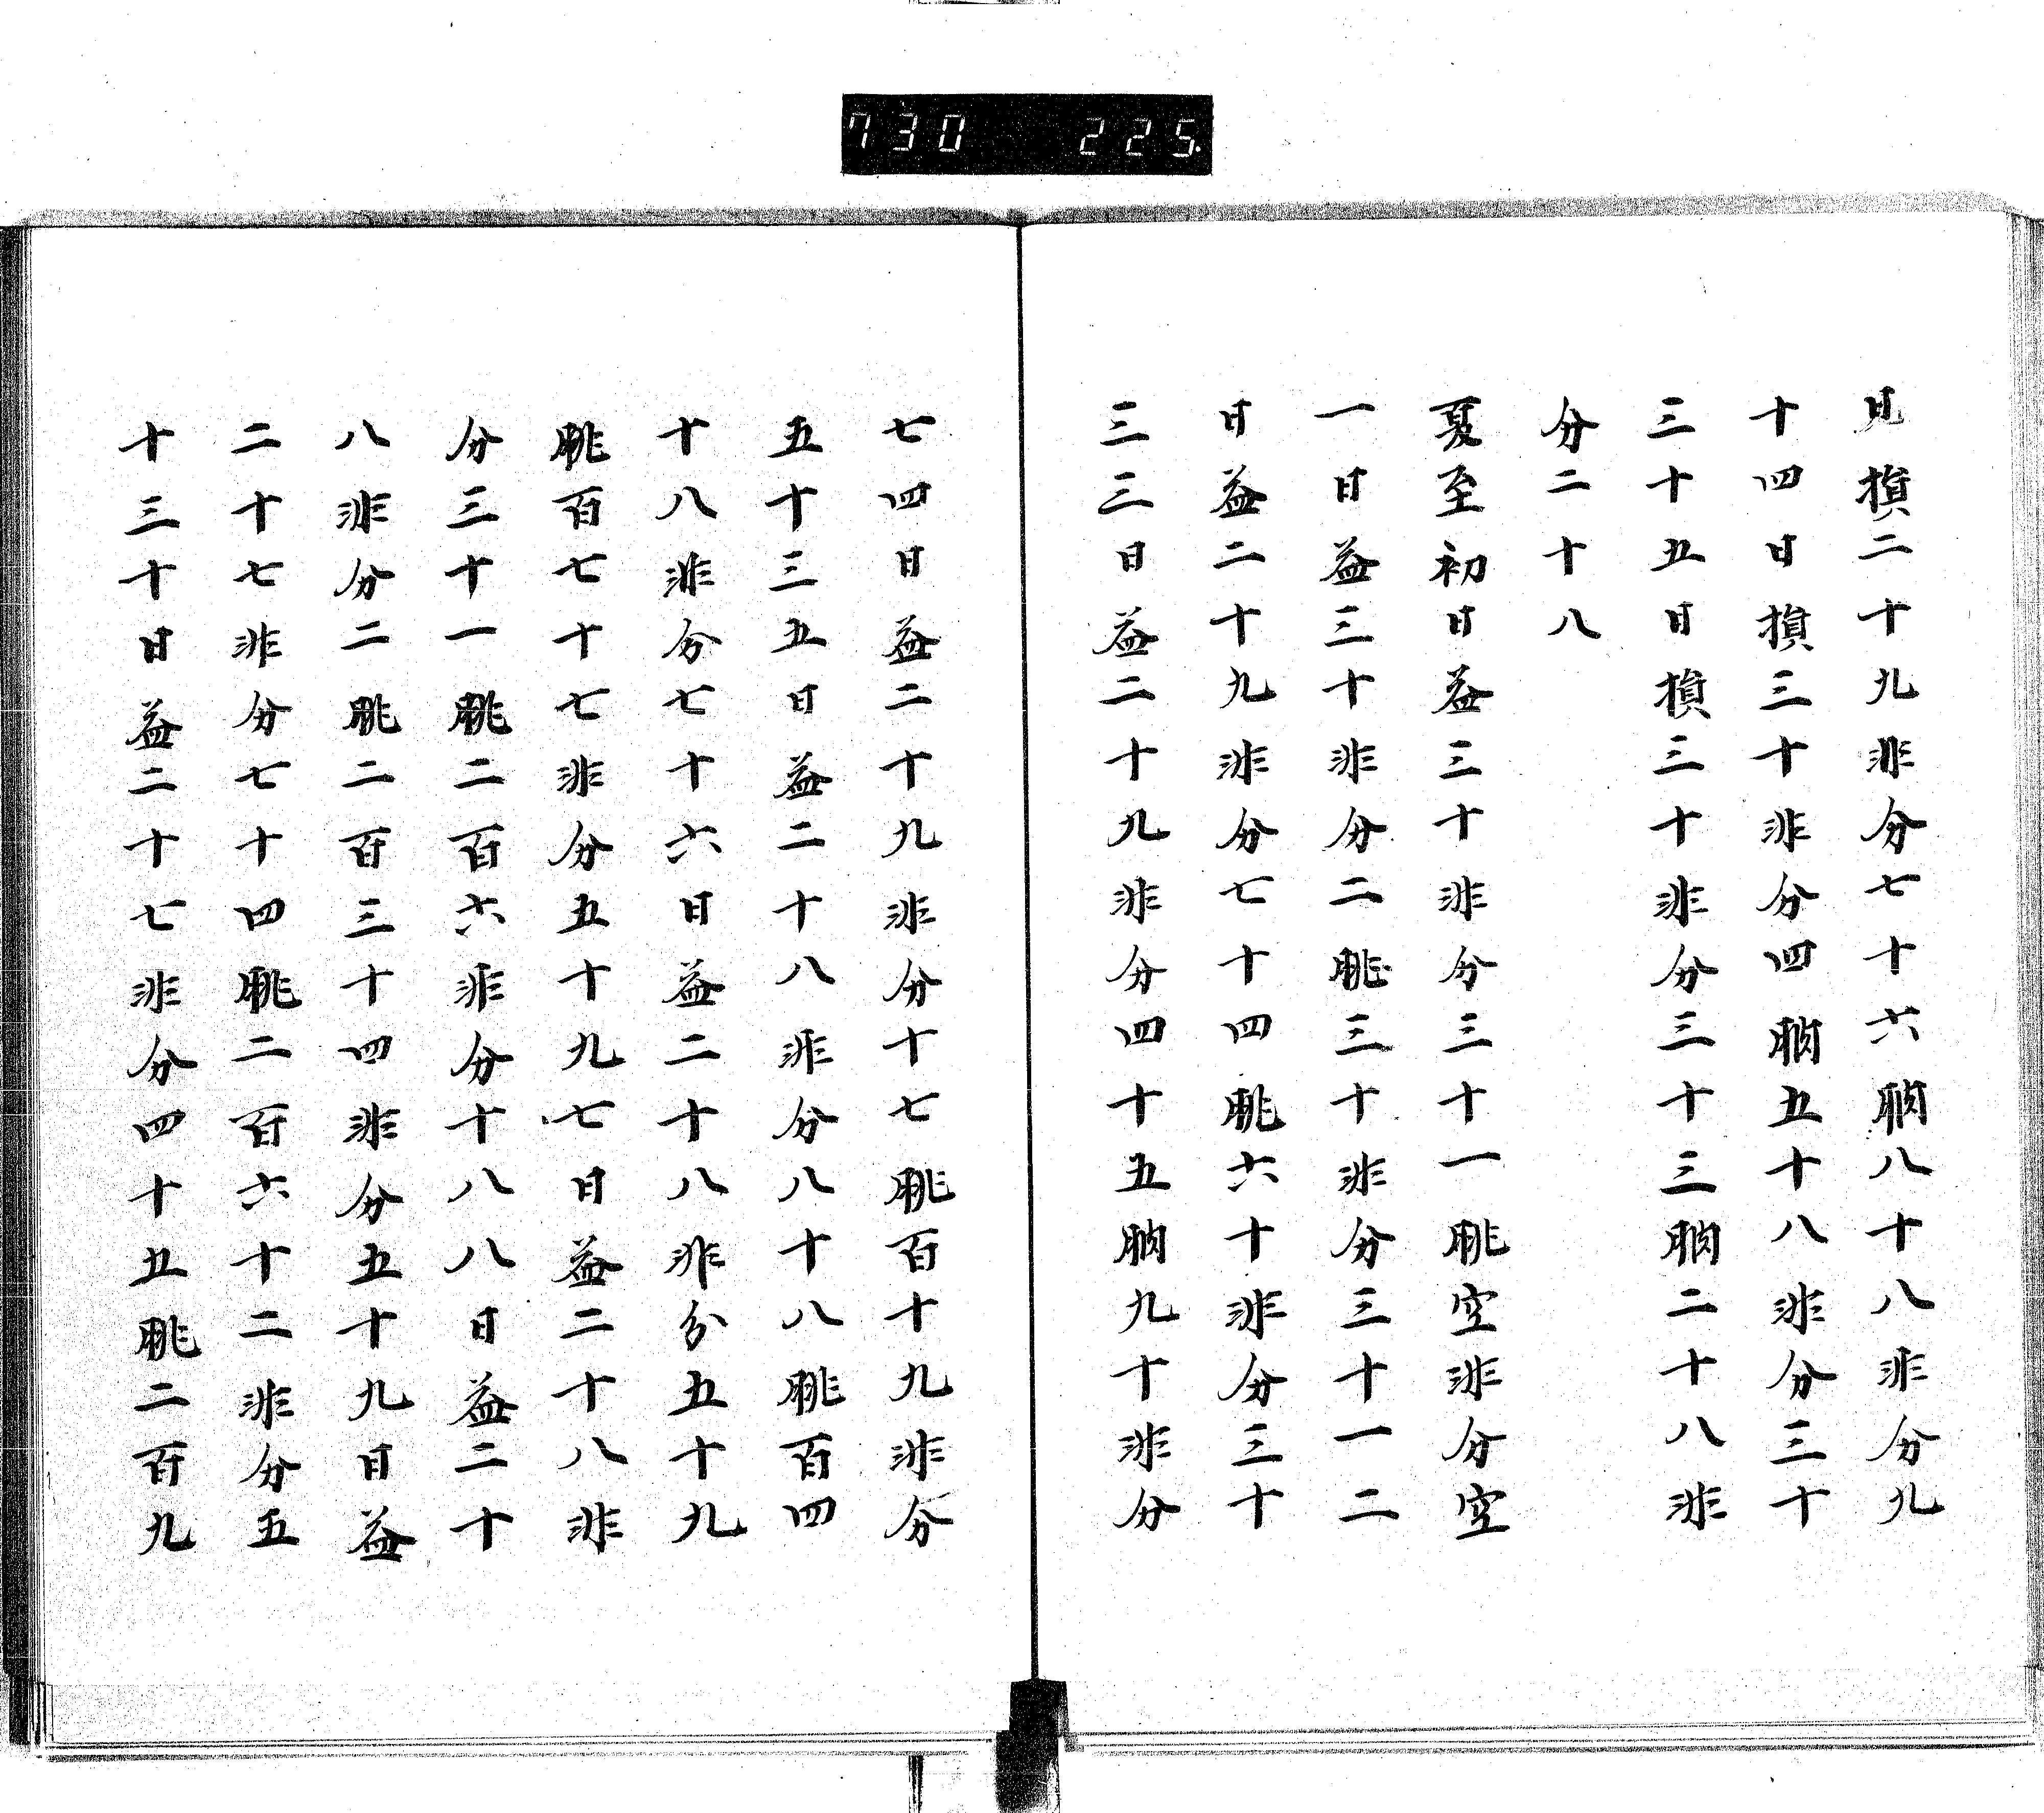 730 225
日損二十九非分七十六朒八十八非分九
十四日損三十非分四朒五十八非分三十
三十五日損三十非分三十三朒二十八非
分二十八
夏至初日益三十非分三十一朓空非分空
一日益三十非分二朓三十非分三十一二
日益二十九非分七十四朓六十非分三十
三三日益二十九非分四十五朒九十非分
七四日益二十九非分十七朓百十九非分
五十三五日益二十八非分八十八朓百四
十八非分七十六日益二十八非分五十九
朓百七十七非分五十九七日益二十八非
分三十一朓二百六非分十八八日益二十
八非分二朓二百三十四非分五十九日益
二十七非分七十四朓二百六十二非分五
十三十日益二十七非分四十五朓二百九